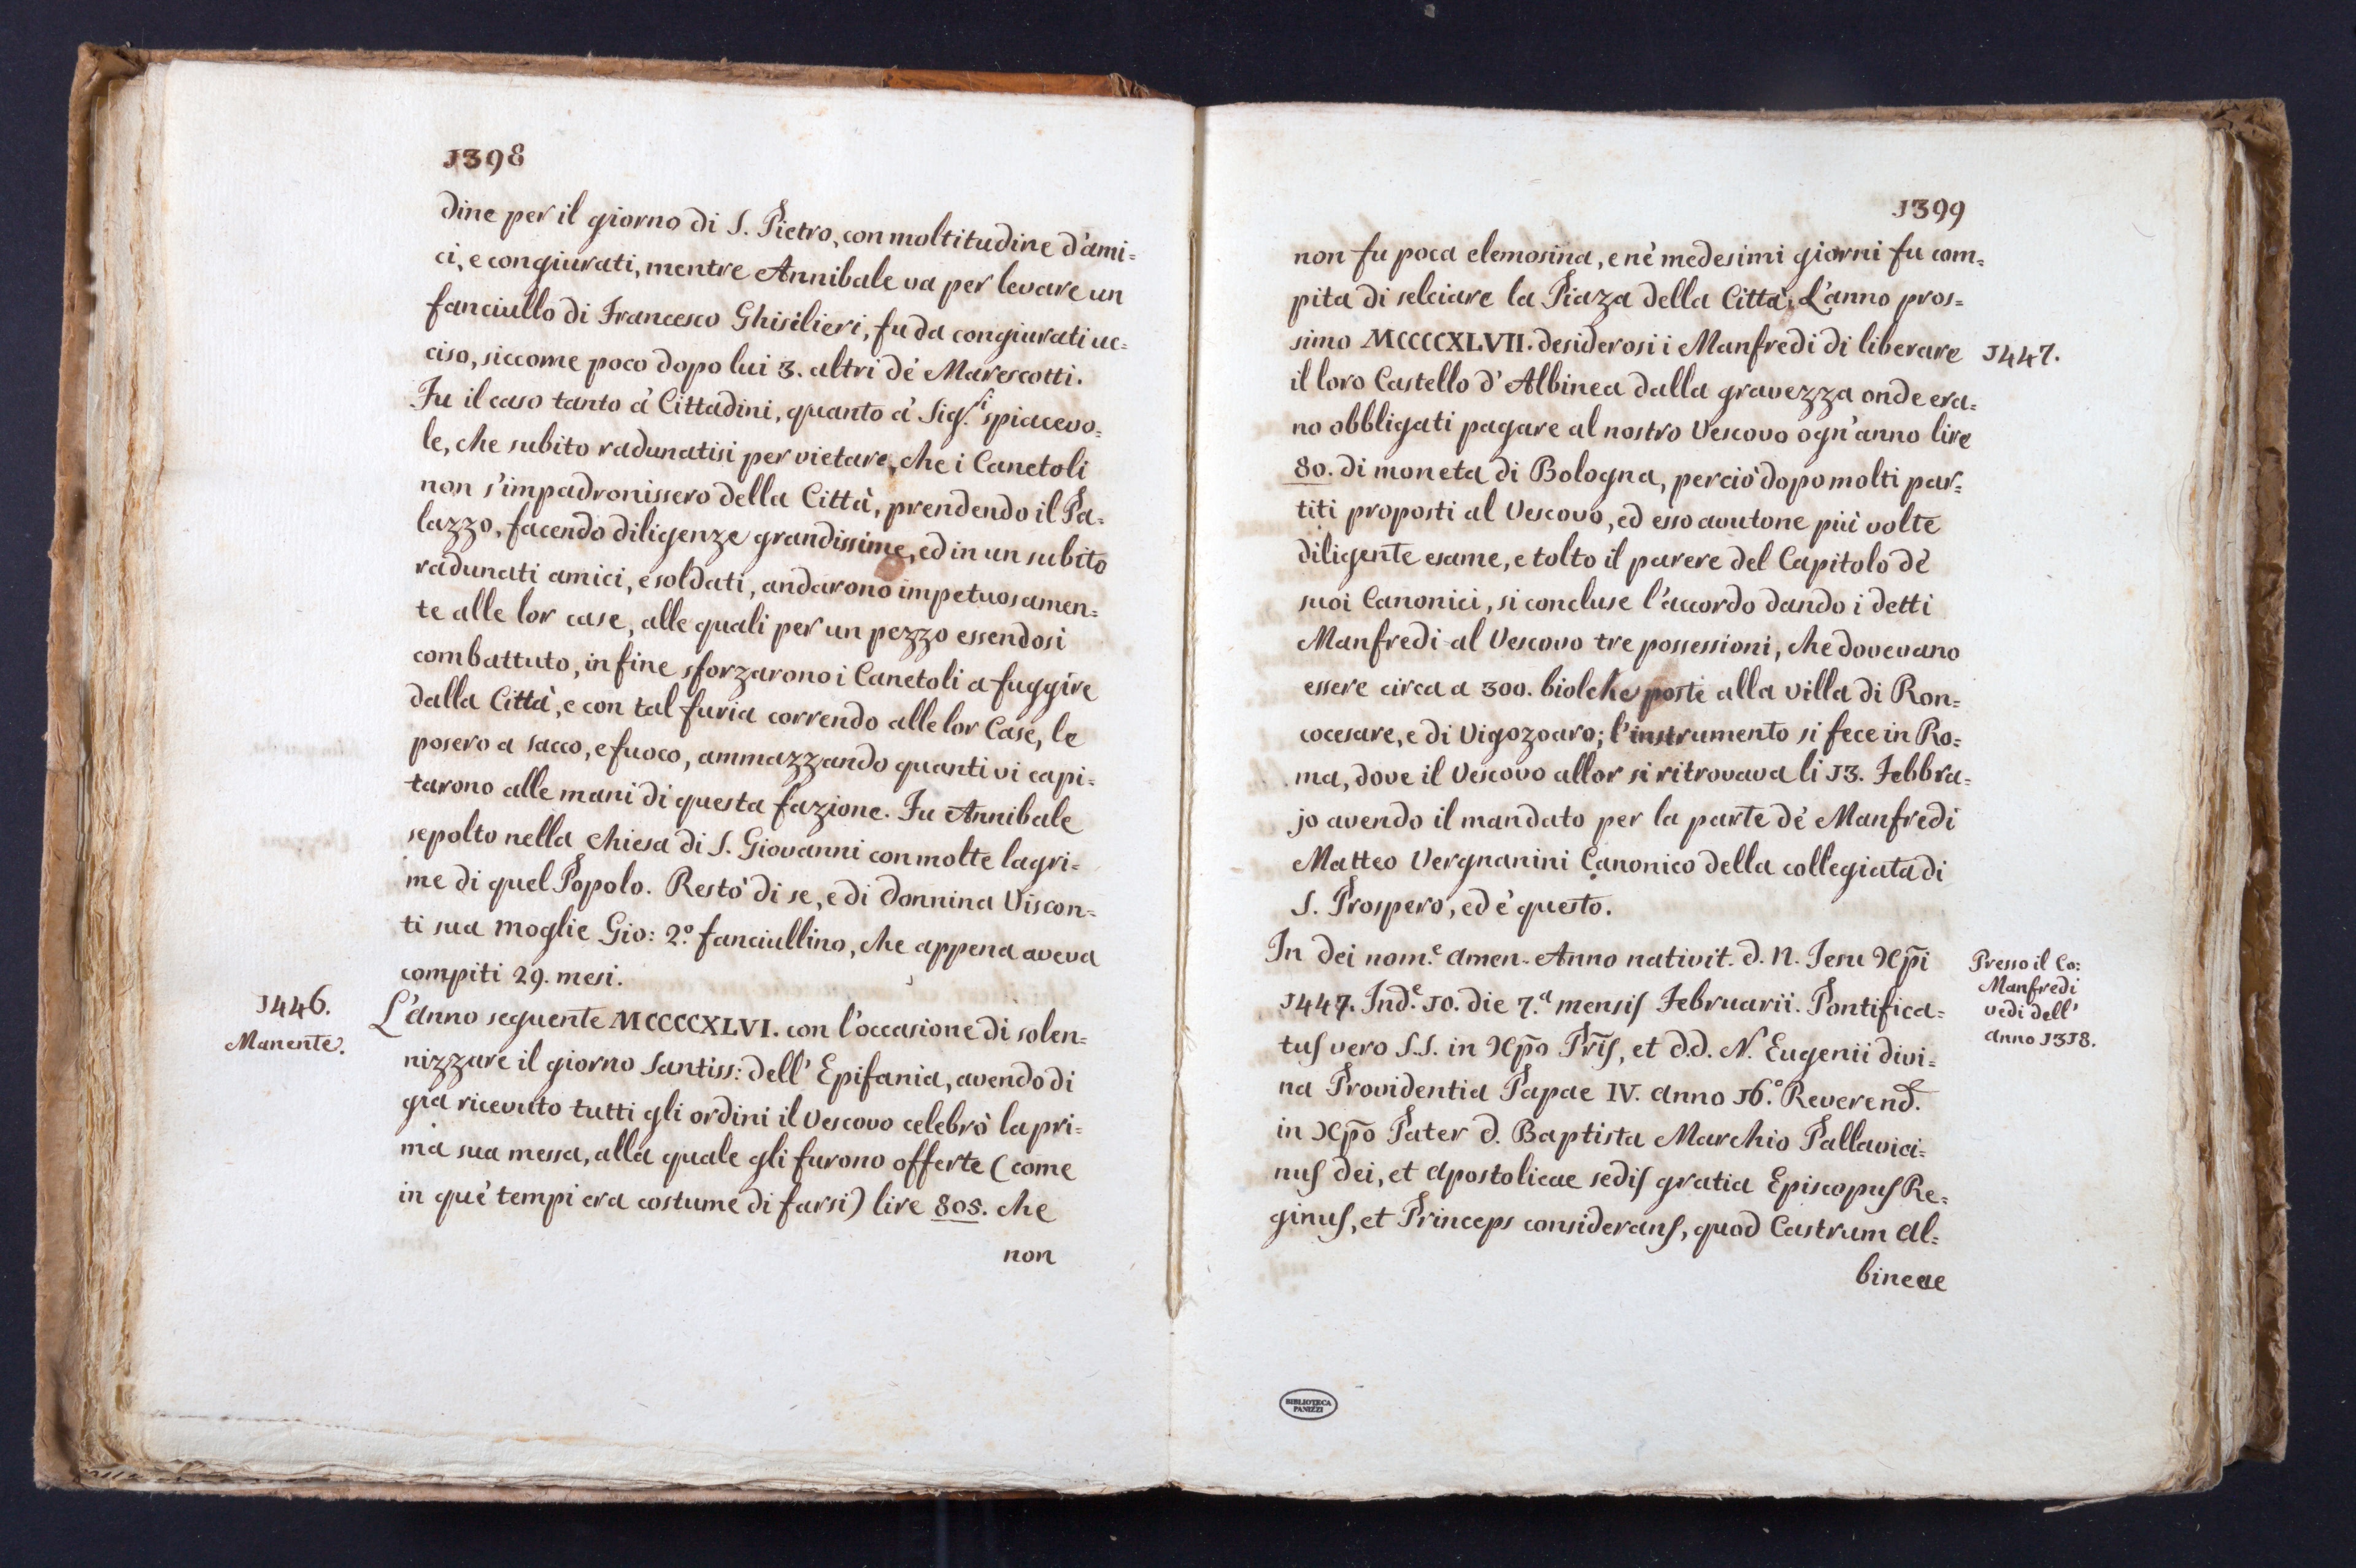 1398
dine per il giorno di S. Pietro, con moltitudine d'ami=
ci, e congiurati, mentre Annibale va per levare un
fanciullo di Francesco Ghisilieri, fu da congiurati uc=
ciso, siccome poco dopo lui 3. altri dè Marescotti.
Fu il caso tanto à Cittadini, quanto à Sig.ri spiacevo=
le, che subito radunatisi per vietare, che i Canetoli
non s'impadronissero della Città, prendendo il Pa=
lazzo, facendo diligenze grandissime, ed in un subito
radunati amici, e soldati, andarono impetuosamen=
te alle lor case, alle quali per un pezzo essendosi
combattuto, in fine sforzarono i Canetoli a fuggire
dalla Città, e con tal furia correndo alle lor Case, le
posero a sacco, e fuoco, ammazzando quanti vi capi=
tarono alle mani di questa fazione. Fu Annibale
sepolto nella chiesa di S. Giovanni con molte lagri=
me di quel Popolo. Restò di se, e di donnina Viscon=
ti sua moglie Gio: 2.º fanciullino, che appena aveva
compiti 29. mesi.
1446.
Manente.
L'anno seguente MCCCCXLVI. con l'occasione di solen=
nizzare il giorno Santiss: dell' Epifania, avendo di
già ricevuto tutti gli ordini il Vescovo celebrò la pri=
ma sua messa, alla quale gli furono offerte (come
in què tempi era costume di farsi) lire 805. che
non
1399
non fu poca elemosina, e nè medesimi giorni fu com=
pita di selciare la Piaza della Città. L'anno pros=
simo MCCCCXLVII. desiderosi i Manfredi di liberare
1447.
il loro Castello d'Albinea dalla gravezza onde era=
no obbligati pagare al nostro Vescovo ogn'anno lire
80. di moneta di Bologna, perciò dopo molti par=
titi proposti al Vescovo, ed esso avutone più volte
diligente esame, e tolto il parere del Capitolo dè
suoi Canonici, si concluse l'accordo dando i detti
Manfredi al Vescovo tre possessioni, che dovevano
essere circa a 300. biolche poste alla villa di Ron=
cocesare, e di Vigozoaro; l'instrumento si fece in Ro=
ma, dove il Vescovo allor si ritrovava li 13. Febbra=
jo avendo il mandato per la parte dè Manfredi
Matteo Vergnanini Canonico della collegiata di
S. Prospero, ed è questo.
In dei nom.e amen. Anno nativit. d. N. Jesu Xp̄i
1447. Ind.e 10. die 7.a mensis Februarii. Pontifica=
tus vero S.S. in Xp̄o Pr̄is, et d.d. N. Eugenii divi=
na Providentia Papae IV. anno 16.º Reverend.
in Xp̄o Pater d. Baptista Marchio Pallavici=
nus dei, et apostolicae sedis gratia Episcopus Re=
ginus, et Princeps considerans, quod Castrum Al=
bineae
Presso il Co:
Manfredi
vedi dell'
anno 1318.
BIBLIOTECA
PANIZZI